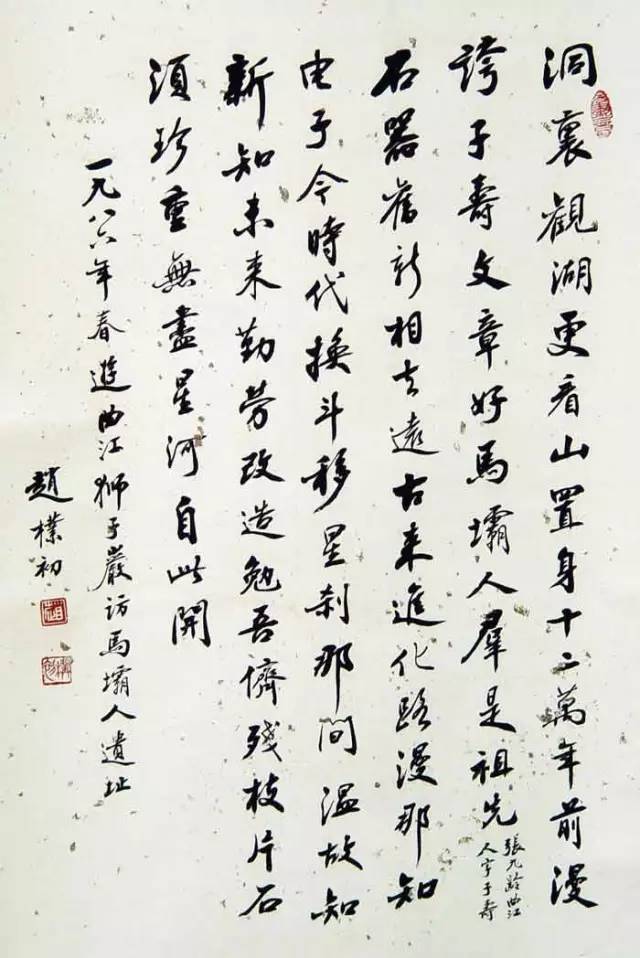 洞裏觀湖更看山置身十二萬年前漫
誇子壽文章好馬壩人羣是祖先
張九齡曲江
人字子壽
石器舊新相去遠古來進化路漫那知
电子今時代換斗移星刹那間温故知
新知未来勤劳改造勉吾儕殘枝片石
須珍重無盡星河自此開
一九八六年春遊曲江獅子巖訪馬壩人遺址
趙樸初